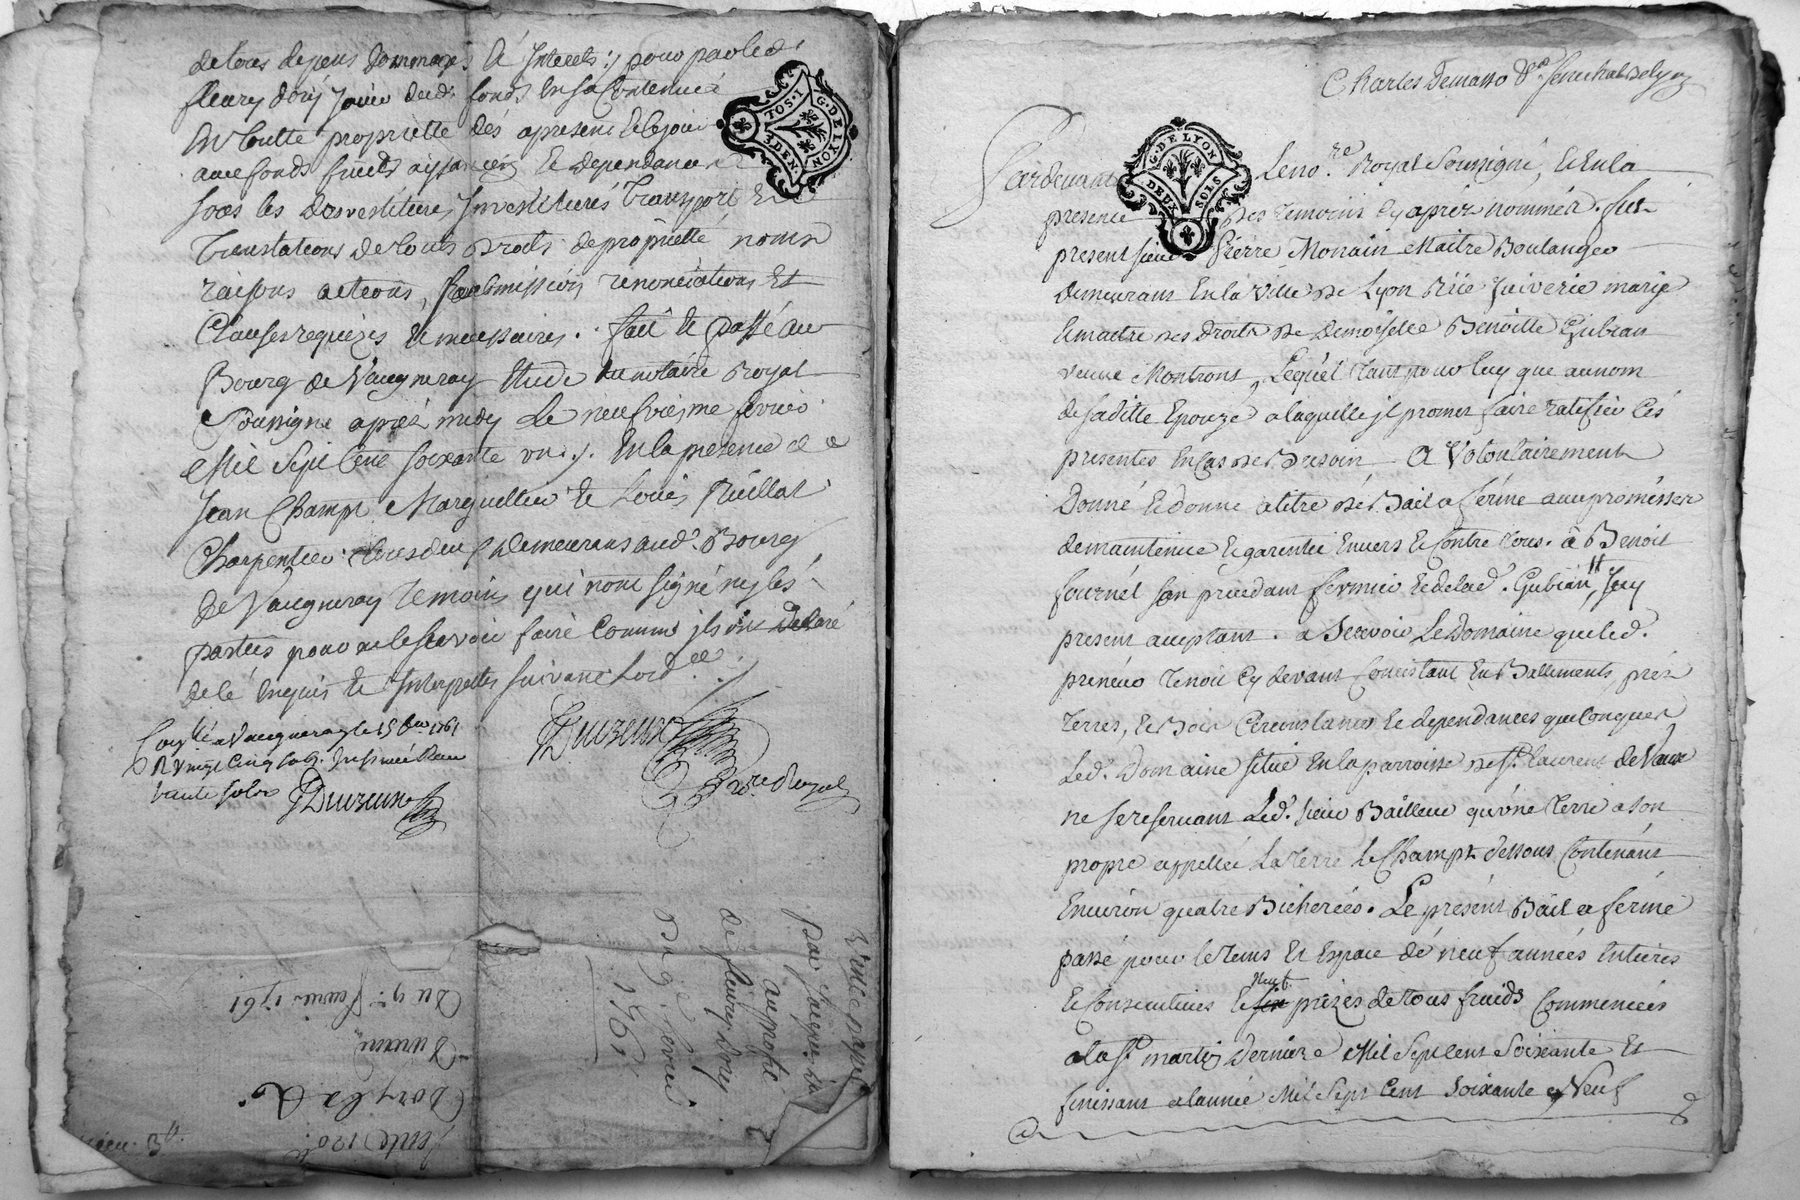 de tous depens dommages & Interets :/ pour par led.
fleury dory Jouir dud. fonds En sa Contenue
En toutte propriette dés apresent Et le jour
avec fonds fruits aysances Et dependances
sous les desvestitures Investitures Transport Et
Translations de tous Droits de propriette noms
raisons actions, submissions renonciations Et
Clauses requises Et necessaires. fait Et Passé au
Bourg de Vaugneray Etude du notaire Royal
Soussigné aprés midy Le neufviesme fevrier
Mil Sept Cent soixante un ./. En la presence de
Jean Champt Marguellier Et Louis Réillat
Charpentier tous deux Demeurans aud. Bourg
De Vaugneray Temoins qui n'ont signé ny les
parties pour ne le scavoir faire Comme ils ont Declaré
de ce Enquis Et Interpellés suivant Lord.ce ./.
Con.lé a Vaugneray le 15 1761
R. vingt Cinq sols. Insinué
trente sols
TOS. 1
3 DEN.
G. DE LYON
Vente passée
par
au profit
de fleury dory
Du 9.e fevrier
1761
Du 9.e Fevrier 1761
Dory
Charles Demasso Sénéchal de Lyon
G. DE LYON
DEUX SOLS
Pardevant Le no.re Royal Soussigné, Et En la
presence Des Temoins Cy aprés nommés. fut
present sieur Pierre Monain Maitre Boulanger
Demeurant En la Ville De Lyon Rüe Juiverie mary
Et maitre des Droits De Demoiselle Benoitte Gubian
veuve Montront, Lequél Tant pour luy que au nom
de saditte Epouze a laquelle il promet faire ratifier Cés
presentes En Cas De Besoin A Volontairement
Donné Et donne a titre De Bail a férme avec promésse
de maintenir Et garentir Envers Et Contre tous. â Benoit
fournél son precedant fermier Et de lad. Gubian, Icy
present acceptant. a Scavoir Le Domaine que led.
preneur Tenoit Cy devant Consistant En Battiments, prés
Terres, Et Bois Circonstances Et dependances quelonques
Led. Domaine situé En la parroisse De S.t Laurent de Vaux
ne se reservant Led. sieur Bailleur qu'une Terre a son
propre appellée La Terre Le Champt dessous Contenant
Environ quatre Bicherées. Le présent Bail a férme
passé pour le Tems Et Espace dé neuf années Entieres
neuf
Et Consecutives Et six prizes de tous fruids Commencées
a la S.t martin Derniere Mil Sept Cent Soixante Et
finissant a l'année Mil Sept Cent Soixante & Neuf